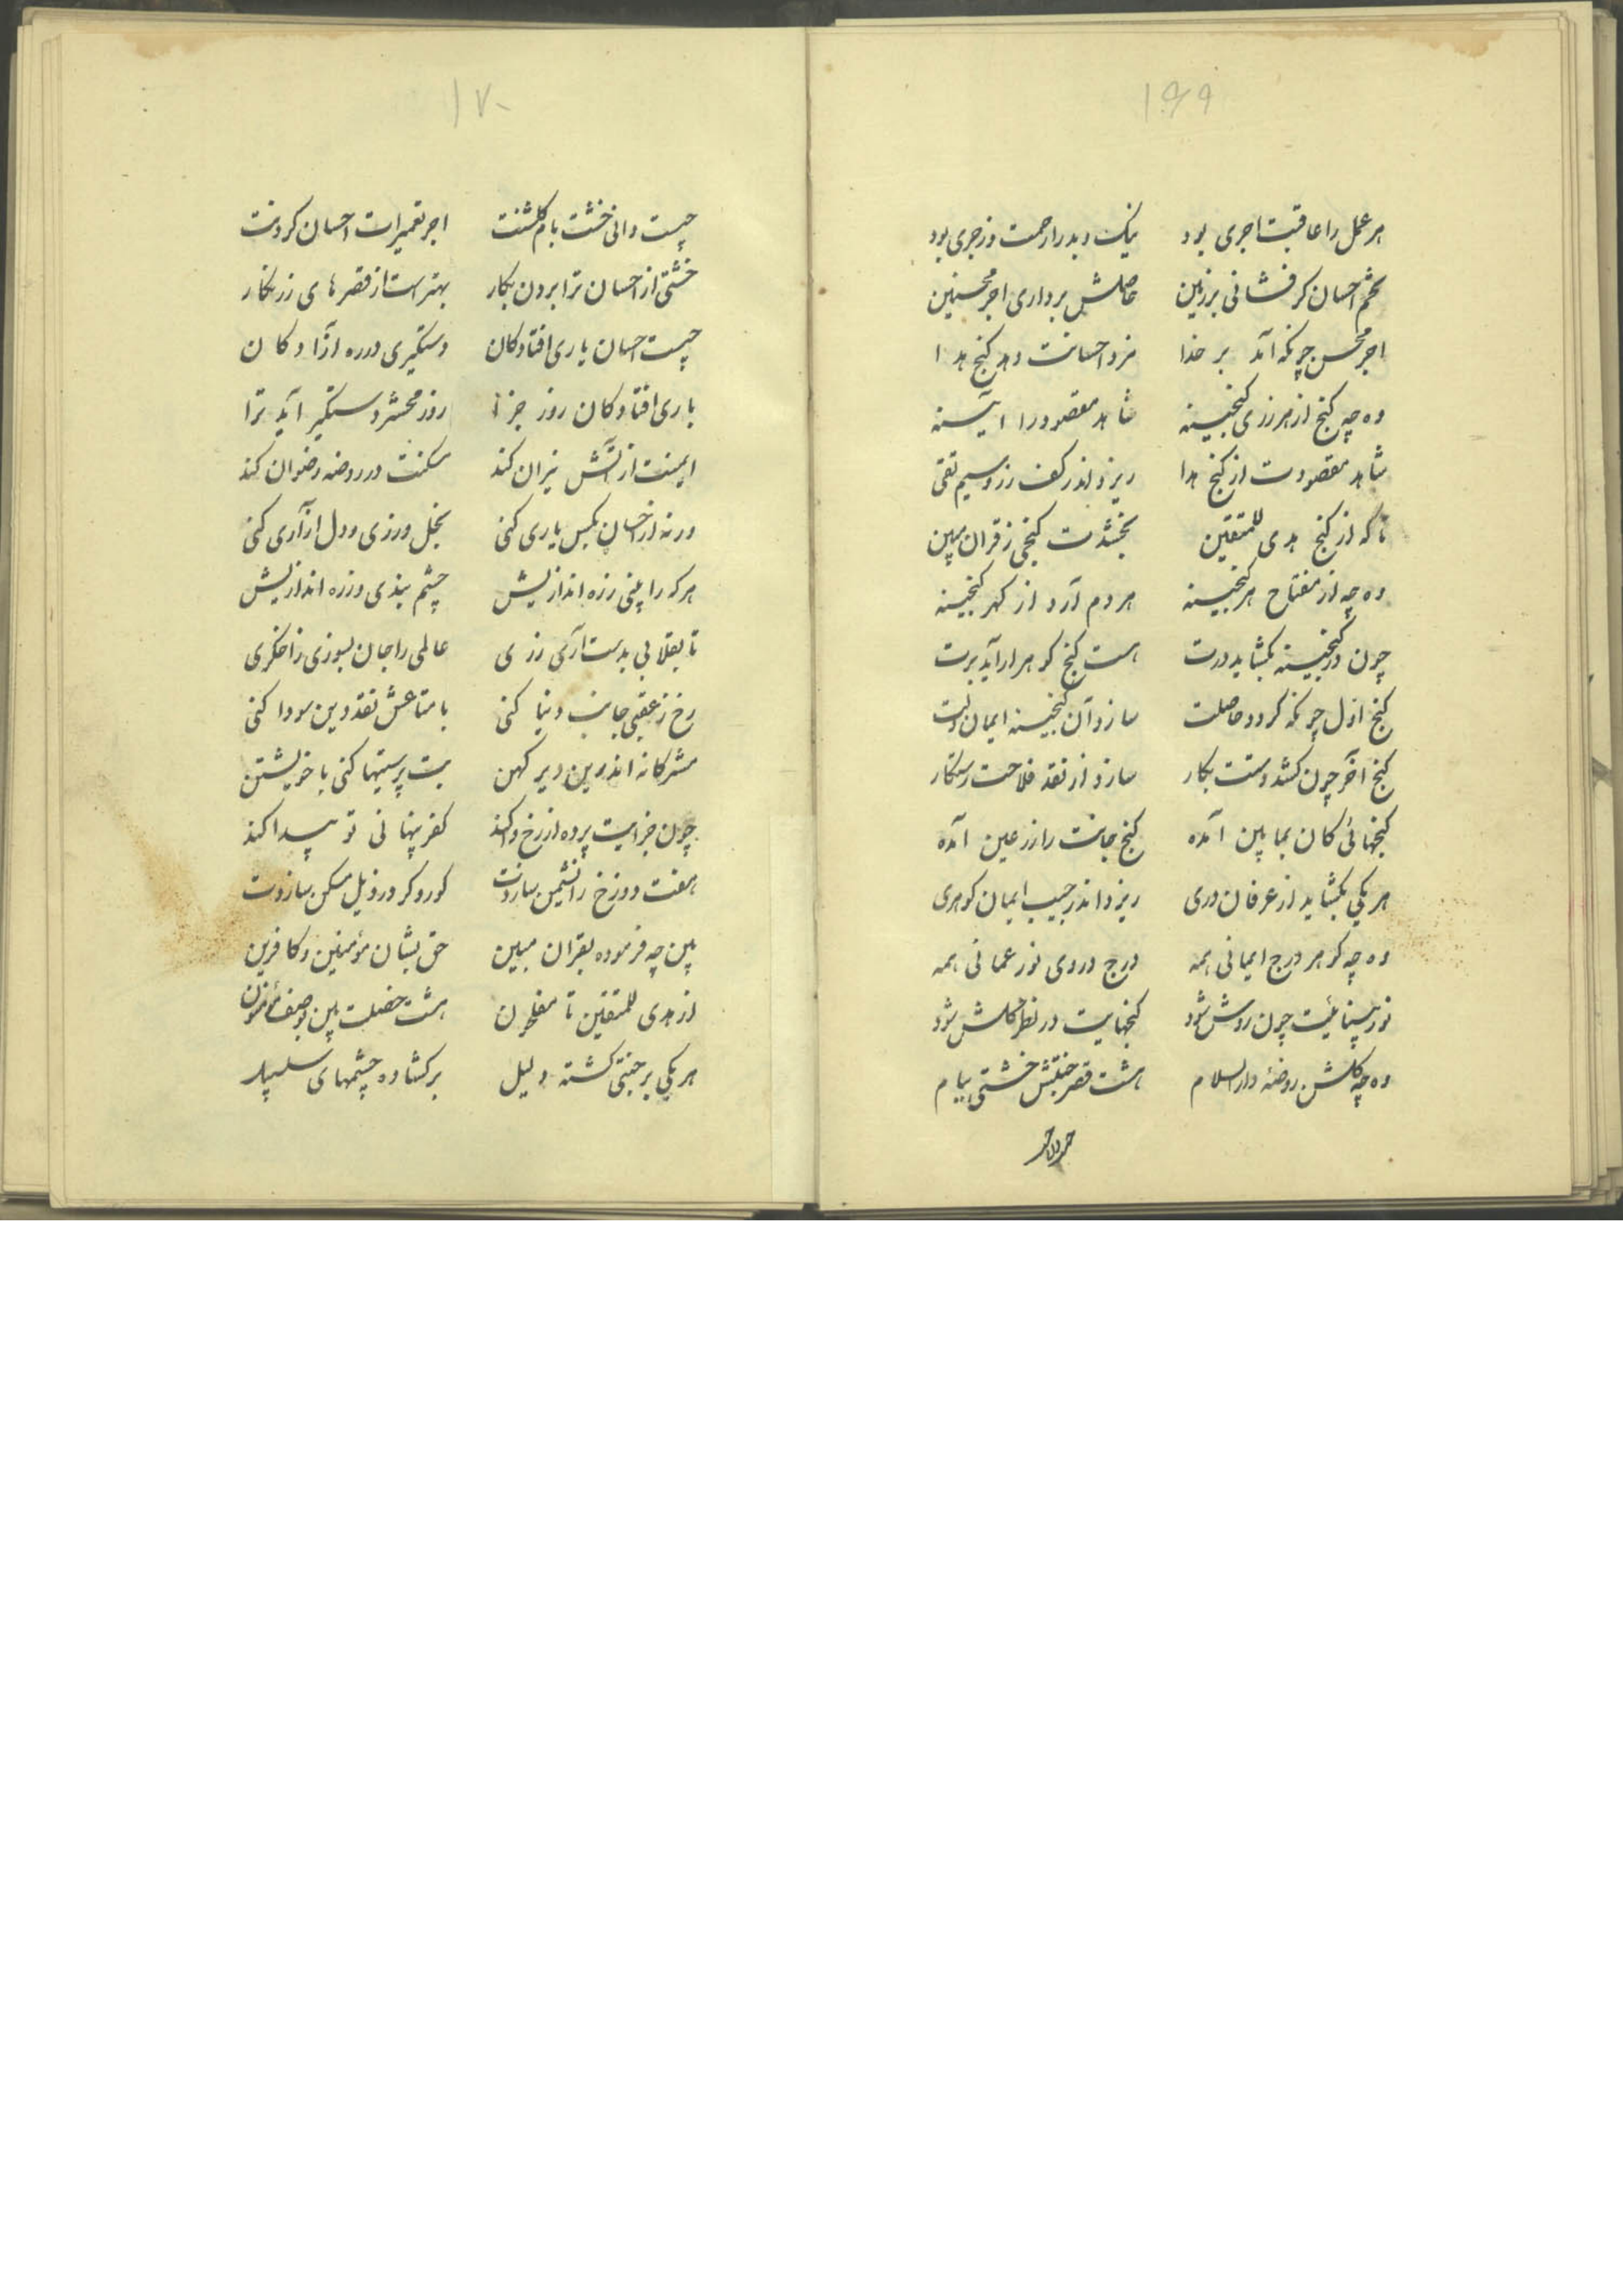 ۱۶۹
هر عمل را عاقبت اجری بود نیک و بد را رحمت و زجری بود
تخم احسان کر فشانی بر زمین حاصلش برداری اجر محسنین
اجر محسن چونکه آمد بر خدا مزد احسانت دهد کنج هدا
وه چه کنج از هر رزی کنجینه شاهد مقصود را آیینه
شاهد مقصودت از کنج هدا ریزد اندر کف زر و سیم تقی
تا که از کنج هدی للمتقین بخشدت کنجی ز قران مبین
وه چه از مفتاح هر کنجینه هر دم آرد از کهر کنجینه
چون در کنجینه بکشاید درت هست کنج کوهر ار آید برت
کنج اول چونکه کردد حاصلت سازد آن کنجینه ایمان دلت
کنج آخر چون کشد دستت بکار سازد از نقد فلاحت رستکار
کنجهائی کان بما بین آمده کنج جانت را زر عین آمده
هر یکی بکشاید از عرفان دری ریزد اندر جیب ایمان کوهری
وه چه کوهر درج ایمانی همه درج در وی نور عمانی همه
نور بینائیت چون روشن شود کنجهایت در نظر کلشن شود
وه چه کلشن روضه دار السلام هشت قصر جنتش خشتی ببام
۱۷۰
چیست دانی خشت بام کلشنت اجر تعمیرات احسان کردنت
خشتی از احسان ترا بردن بکار بهتر است از قصرهای زرنکار
چیست احسان یاری افتادکان دستکیری در ره آزادکان
یاری افتادکان روز جزا روز محشر دستکیر آید ترا
ایمنت از آتش نیران کند مسکنت در روضه رضوان کند
ورنه از احسان بکس یاری کنی بخل ورزی و دل آزاری کنی
هر که را بینی زره اندازیش چشم بندی وز ره اندازیش
تا بقلابی بدست آری زری عالمی را جان بسوزی ز اخکری
رخ ز عقبی جانب دنیا کنی با متاعش نقد دین سودا کنی
مشرکانه اندرین دیر کهن بت پرستیها کنی با خویشتن
چون جزایت پرده از رخ وا کند کفر پنهانی تو پیدا کند
هفت دوزخ را نشیمن سازدت کور و کر در ویل مسکن سازدت
بین چه فرموده بقران مبین حق بشان مؤمنین و کافرین
از هدی للمتقین تا مفلحون هشت خصلت بین بوصف مؤمنون
هر یکی بر جنتی کشته دلیل برکشاده چشمهای سلسبیل